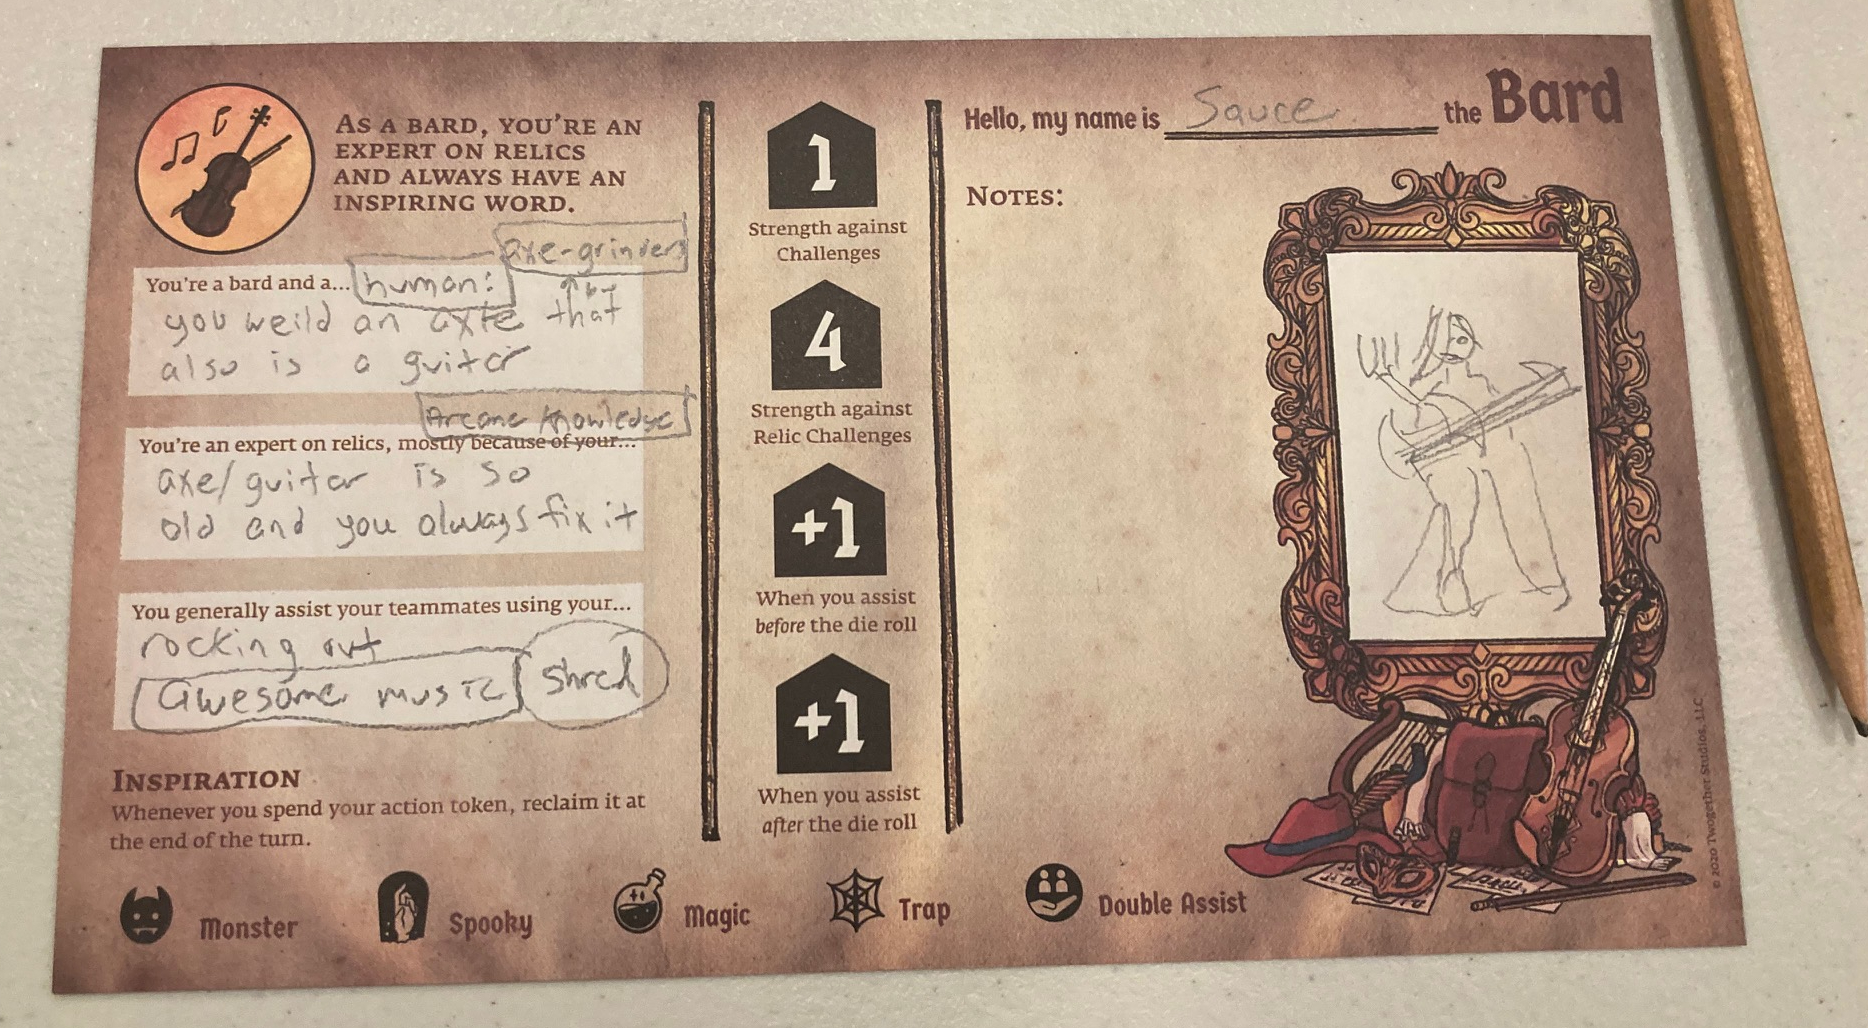 AS A BARD, YOU'RE AN
EXPERT ON RELICS
AND ALWAYS HAVE AN
INSPIRING WORD.
axe-grinder
You're a bard and a... human:
you weild an axte that
also is a guitar
Arcane Knowledge
You're an expert on relics, mostly because of your...
axe/guitar is so
old and you always fix it
You generally assist your teammates using your...
rocking out
awesome music shred
INSPIRATION
Whenever you spend your action token, reclaim it at
the end of the turn.
1
Strength against
Challenges
4
Strength against
Relic Challenges
+1
When you assist
before the die roll
+1
When you assist
after the die roll
Hello, my name is Sauce the Bard
NOTES:
Monster Spooky Magic Trap Double Assist
© 2020 Twogether Studios, LLC